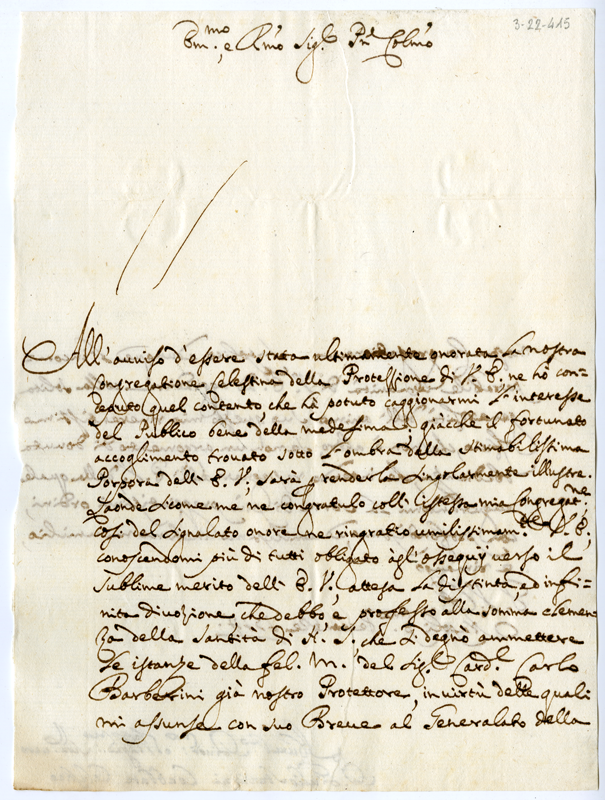 3-22-415
Em.mo, e R.mo Sig.r P.rn Col.mo
All'auviso d'essere stata ultimamente onorata la nostra
Congregatione Celestina della Protessione di V. E. ne hò con-
ceputo quel contento, che hà potuto caggionarmi l'interesse
del Publico bene della medesima, giàcche il fortunato
accoglimento trovato sotto l'ombra della stimabilissima
Porpora dell'E. V., sarà prenderla singolarmente illustre.
Laonde sicome me ne congratulo coll'istessa mia Congregat.ne
così del segnalato onore ne ringratio umilissimam.te V. E.,
conoscendomi più di tutti obligato àgl'ossequij verso il
sublime merito dell'E. V., attesa la distinta, ed infi-
nita divozione, che debbo, e professo alla somma clemen-
za della Santità di N. S., che si degnò ammettere
le istanze della fel. M. del Sig.r Card.l Carlo
Barberini già nostro Protettore, in virtù delle quali
mi assunse con suo Breve al Generalato della